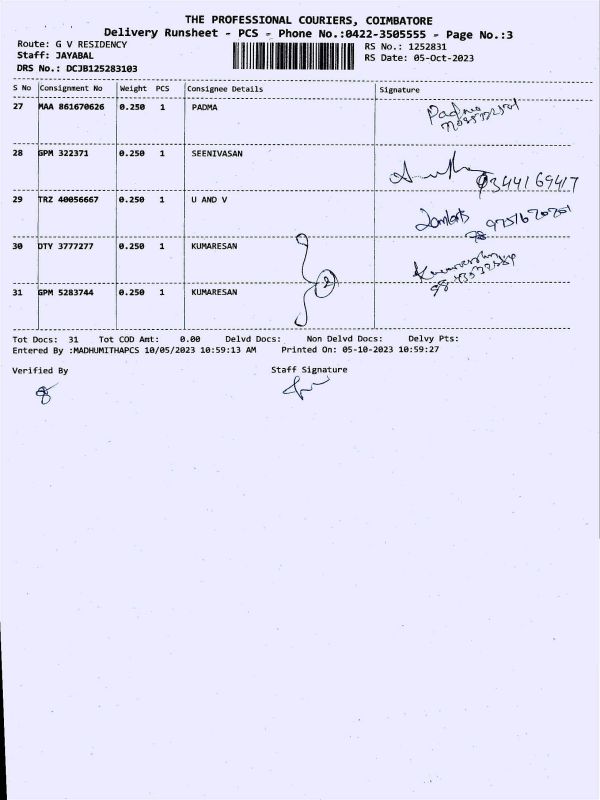 THE PROFESSIONAL COURIERS, COIMBATORE
Delivery Runsheet - PCS - Phone No.:0422-3505555 - Page No.:3
Route: G V RESIDENCY RS No.: 1252831
Staff: JAYABAL RS Date: 05-Oct-2023
DRS No.: DCJB125283103
S No Consignment No Weight PCS Consignee Details Signature
27 MAA 861670626 0.250 1 PADMA Padma
28 GPM 322371 0.250 1 SEENIVASAN
9344169417
29 TRZ 40056667 0.250 1 U AND V
30 DTY 3777277 0.250 1 KUMARESAN Kumaresan
2
31 GPM 5283744 0.250 1 KUMARESAN
Tot Docs: 31 Tot COD Amt: 0.00 Delvd Docs: Non Delvd Docs: Delvy Pts:
Entered By :MADHUMITHAPCS 10/05/2023 10:59:13 AM Printed On: 05-10-2023 10:59:27
Verified By Staff Signature